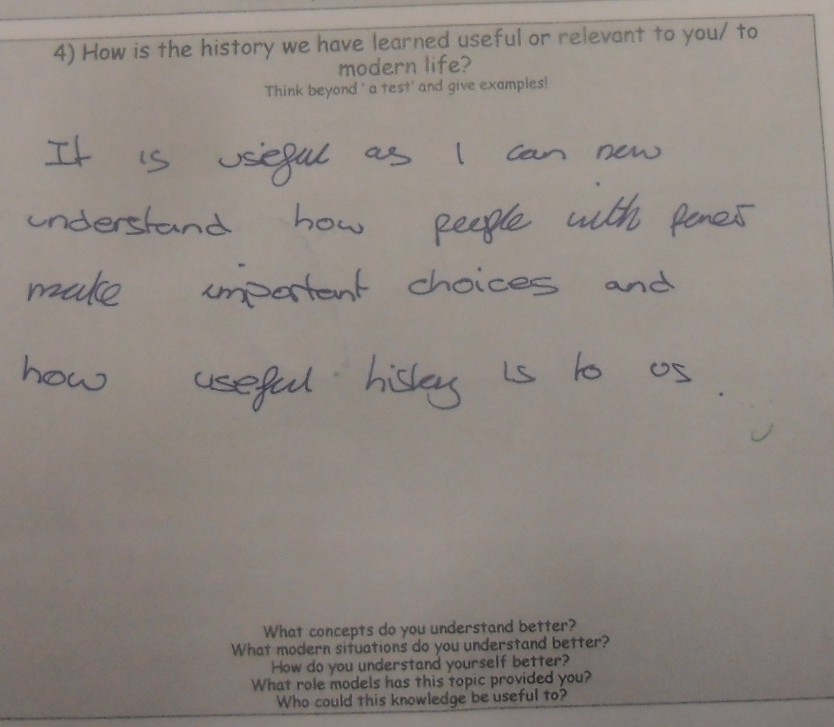 4) How is the history we have learned useful or relevant to you/ to
modern life?
Think beyond ' a test' and give examples!
It is useful as I can now
understand how people with power
make important choices and
how useful history is to us.
What concepts do you understand better?
What modern situations do you understand better?
How do you understand yourself better?
What role models has this topic provided you?
Who could this knowledge be useful to?